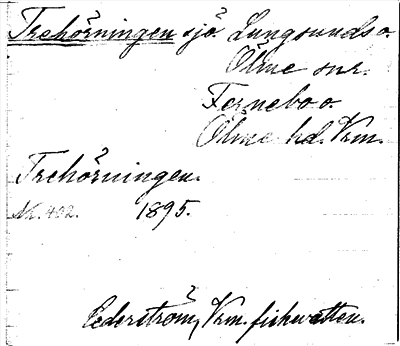 Trehörningen sjö. Lungsunds o
Ölme snr.
Fernebo o
Ölme hd. Vrm.
Trehörningen.
Nr. 402. 1895.
Cederström, Vrm. fiskevatten.